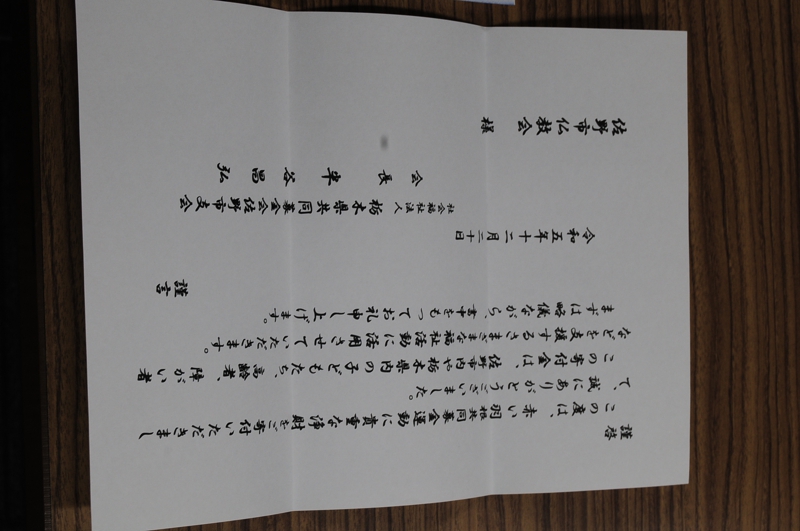 謹啓
この度は、赤い羽根共同募金運動に貴重な浄財をご寄付いただきまし
て、誠にありがとうございました。
この寄付金は、佐野市内や栃木県内の子どもたち、高齢者、障がい者
などを支援するさまざまな福祉活動に活用させていただきます。
まずは略儀ながら、書中をもってお礼申し上げます。
謹言
令和五年十二月二十日
社会福祉法人 栃木県共同募金会佐野市支会
会長 車谷昌弘
佐野市仏教会 様